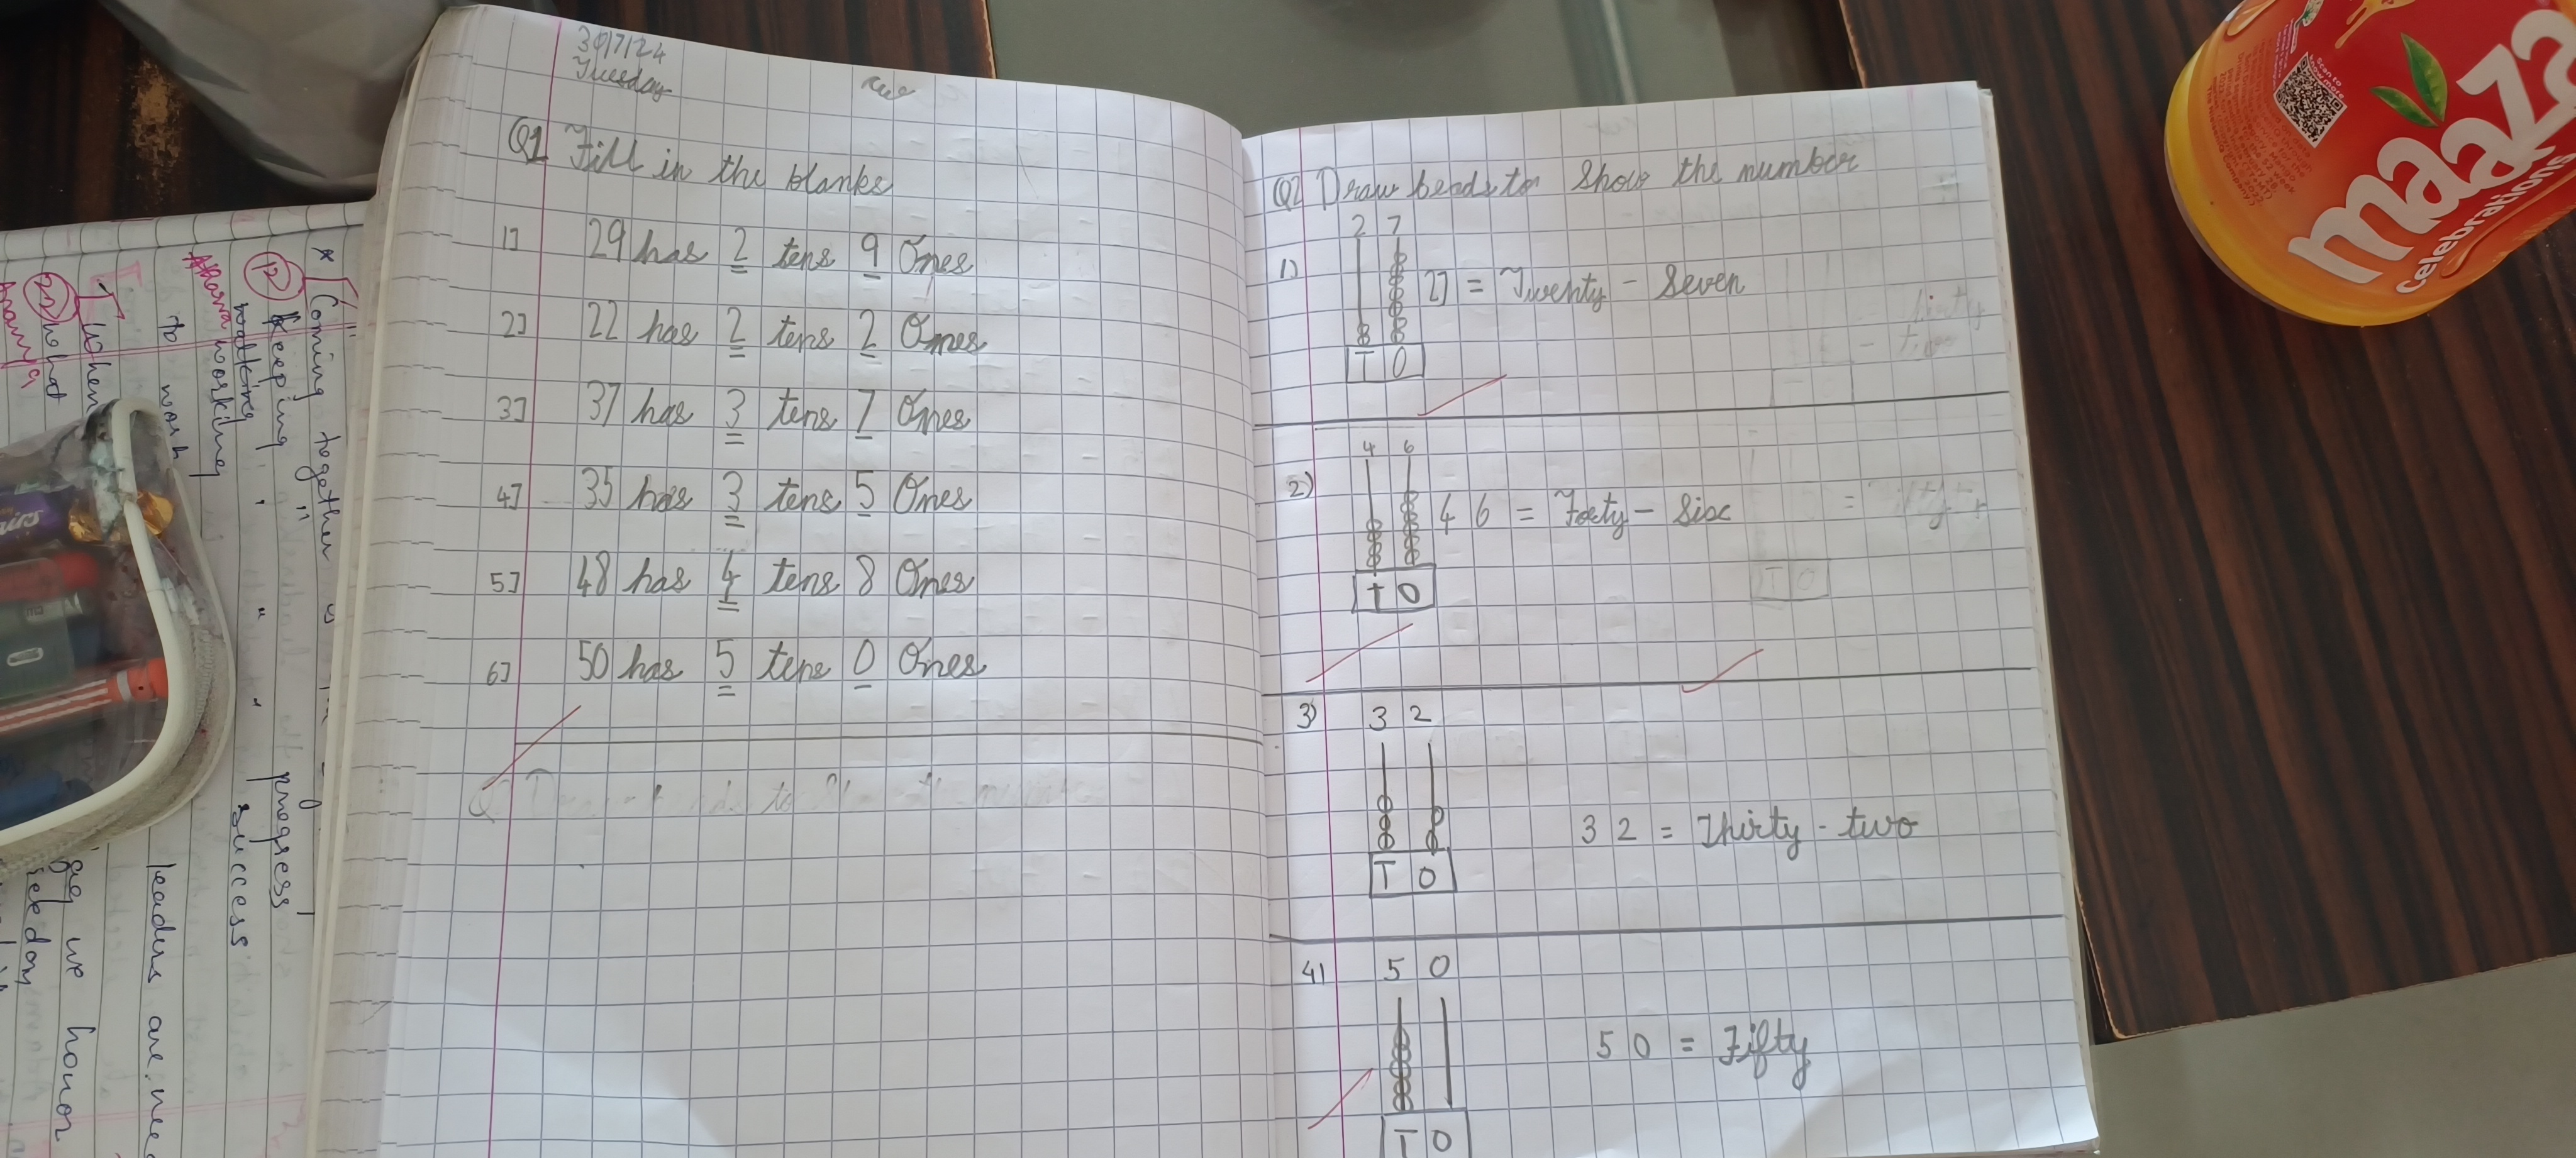 30/7/24
Tuesday
Q1 Fill in the blanks
1] 29 has 2 tens 9 Ones
2] 22 has 2 tens 2 Ones
3] 37 has 3 tens 7 Ones
4] 35 has 3 tens 5 Ones
5] 48 has 4 tens 8 Ones
6] 50 has 5 tens 0 Ones
Q2 Draw beads to show the number
2 7
1) 27 = Twenty - Seven
T O
4 6
2) 46 = Forty - Six
T O
3) 3 2
32 = Thirty - two
T O
4) 5 0
50 = Fifty
T O
* Coming together is
12 Keeping " " progress
walking
working " " success
to work leaders are
When
22 what we honor
Ananya
maaza
celebrations
Scan to know more